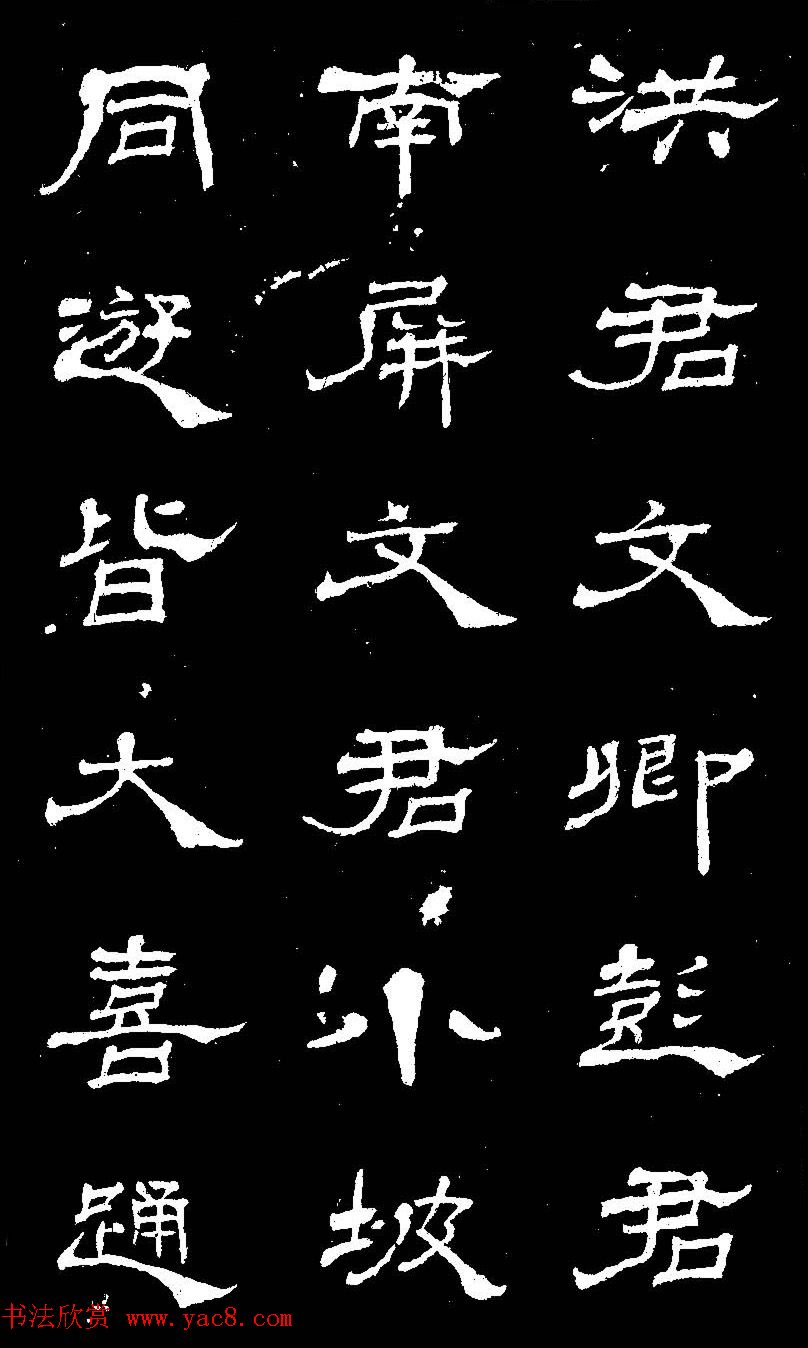 洪君文卿彭君
南屏文君小坡
同遊皆大喜踊
书法欣赏 www.yac8.com